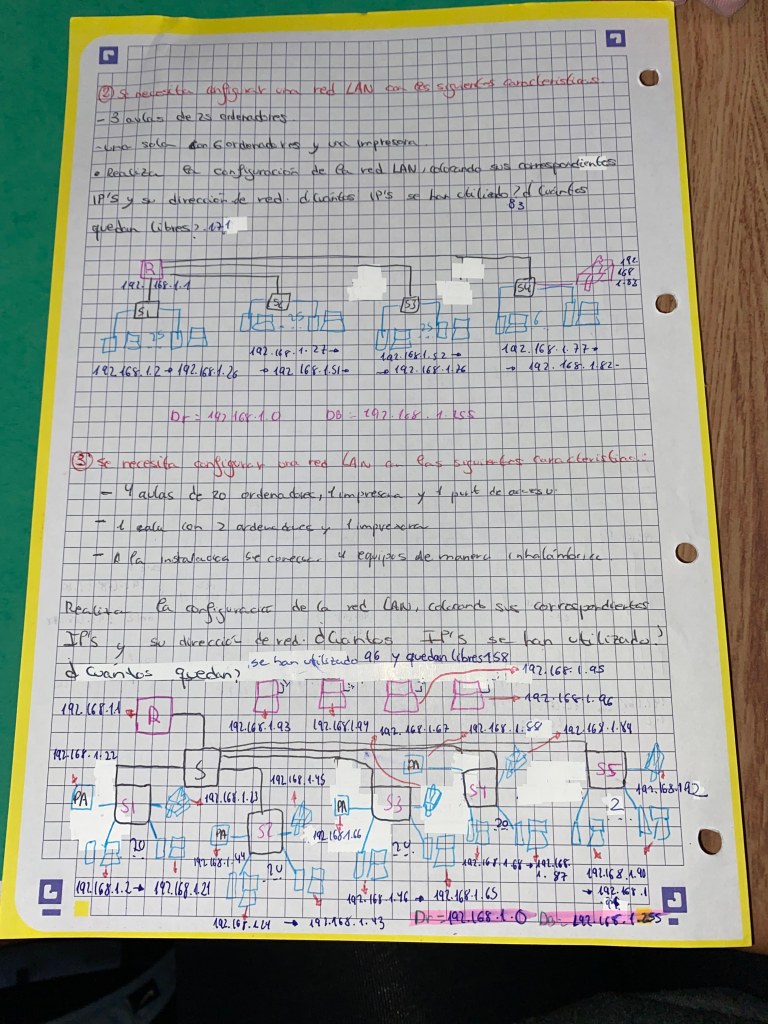 ② Se necesita configurar una red LAN con las siguientes características
- 3 aulas de 25 ordenadores.
- una sala con 6 ordenadores y una impresora
• Realiza la configuración de la red LAN, colocando sus correspondientes
IP'S y su dirección de red. ¿Cuántos IP'S se han utilizado? ¿Cuántos
83
quedan libres? 171
R
192.168.1.1
S1
S2
S3
S4
192
168
1.83
25
25
25
6
192.168.1.2 → 192.168.1.26
192.168.1.27 →
→ 192.168.1.51
192.168.1.52 →
→ 192.168.1.76
192.168.1.77 →
→ 192.168.1.82
Dr = 192.168.1.0 DB = 192.168.1.255
③ Se necesita configurar una red LAN con las siguientes características:
- 4 aulas de 20 ordenadores, 1 impresora y 1 punt de acceso
- 1 sala con 2 ordenadores y 1 impresora
- A la instalación se conectan 4 equipos de manera inhalámbrica
Realiza la configuración de la red LAN, colocando sus correspondientes
IP'S y su dirección de red. ¿Cuántos IP'S se han utilizado?
¿Cuántos quedan? se han utilizado 96 y quedan libres 158
192.168.1.95
192.168.1.96
192.168.1.1
R
192.168.1.93
192.168.1.94
192.168.1.67
192.168.1.88
192.168.1.89
192.168.1.22
S
PA
S1
192.168.1.23
192.168.1.45
PA
S2
PA
192.168.1.66
S3
PA
S4
S5
192.168.1.92
20
192.168.1.44
20
20
20
2
192.168.1.2 → 192.168.1.21
192.168.1.24 → 192.168.1.43
192.168.1.46 → 192.168.1.65
192.168.1.68 → 192.168.
1.87
192.168.1.90
→ 192.168.1
Dr = 192.168.1.0 DB = 192.168.1.255